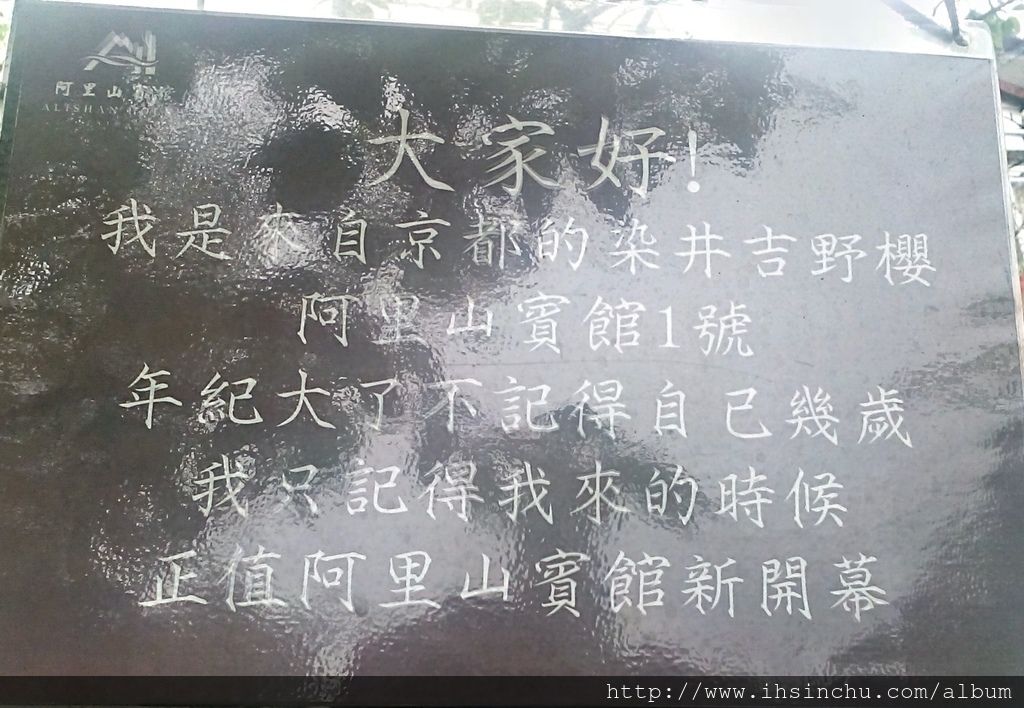 阿里山
大家好!
我是來自京都的染井吉野櫻
阿里山賓館1號
年紀大了不記得自己幾歲
我只記得我來的時候
正值阿里山賓館新開幕
http://www.ihsinchu.com/album